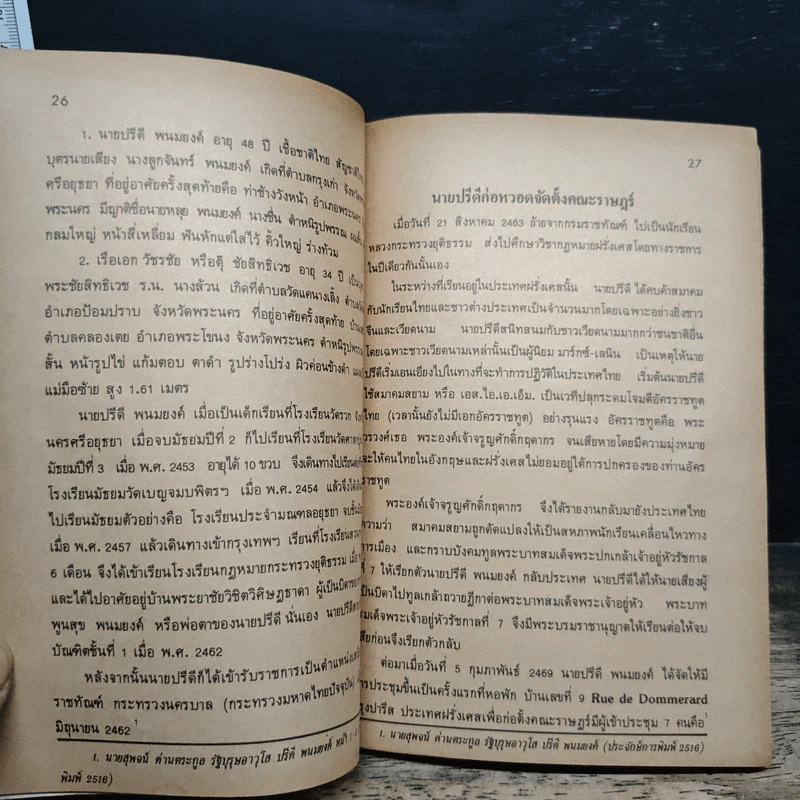 26
1. นายปรีดี พนมยงค์ อายุ 48 ปี เชื้อชาติไทย สัญชาติไทย
บุตรนายเสียง นางลูกจันทร์ พนมยงค์ เกิดที่ตำบลกรุงเก่า จังหวัด
ศรีอยุธยา ที่อยู่อาศัยครั้งสุดท้ายคือ ท่าช้างวังหน้า อำเภอพระนคร
พระนคร มีญาติชื่อนายหลุย พนมยงค์ นางชื่น ตำหนิรูปพรรณ
กลมใหญ่ หน้าสี่เหลี่ยม ฟันหักแต่ใส่ไว้ คิ้วใหญ่ ร่างท้วม
2. เรือเอก วัชรชัย หรือตุ๊ ชัยสิทธิเวช อายุ 34 ปี เป็น
พระชัยสิทธิเวช ร.น. นางส้วน เกิดที่ตำบลวัดแคนางเลิ้ง
อำเภอป้อมปราบ จังหวัดพระนคร ที่อยู่อาศัยครั้งสุดท้าย
ตำบลคลองเตย อำเภอพระโขนง จังหวัดพระนคร ตำหนิรูปพรรณ
สั้น หน้ารูปไข่ แก้มตอบ ตาดำ รูปร่างโปร่ง ผิวค่อนข้างดำ
แม่มือซ้าย สูง 1.61 เมตร
นายปรีดี พนมยงค์ เมื่อเป็นเด็กเรียนที่โรงเรียนวัดรวก
นครศรีอยุธยา เมื่อจบมัธยมปีที่ 2 ก็ไปเรียนที่โรงเรียนวัด
มัธยมปีที่ 3 เมื่อ พ.ศ. 2453 อายุได้ 10 ขวบ จึงเดินทางไปเรียนต่อ
โรงเรียนมัธยมวัดเบญจมบพิตรฯ เมื่อ พ.ศ. 2454 แล้วจึงได้
ไปเรียนมัธยมตัวอย่างคือ โรงเรียนประจำมณฑลอยุธยา จบชั้น
เมื่อ พ.ศ. 2457 แล้วเดินทางเข้ากรุงเทพฯ เรียนที่โรงเรียน
6 เดือน จึงได้เข้าเรียนโรงเรียนกฎหมายกระทรวงยุติธรรม เมื่อ
และได้ไปอาศัยอยู่บ้านพระยาชัยวิชิตวิศิษฎธาดา ผู้เป็นบิดาของ
พูนสุข พนมยงค์ หรือพ่อตาของนายปรีดีนั่นเอง นายปรีดี
บัณฑิตชั้นที่ 1 เมื่อ พ.ศ. 2462
หลังจากนั้นนายปรีดีก็ได้เข้ารับราชการเป็นตำแหน่ง
ราชทัณฑ์ กระทรวงนครบาล (กระทรวงมหาดไทยปัจจุบัน)
มิถุนายน 2462¹
1. นายสุพจน์ ด่านตระกูล รัฐบุรุษอาวุโส ปรีดี พนมยงค์ หน้า
พิมพ์ 2516)
27
นายปรีดีก่อหวอดจัดตั้งคณะราษฎร์
เมื่อวันที่ 21 สิงหาคม 2463 ย้ายจากกรมราชทัณฑ์ ไปเป็นนักเรียน
หลวงกระทรวงยุติธรรม ส่งไปศึกษาวิชากฎหมายฝรั่งเศสโดยทางราชการ
ในปีเดียวกันนั้นเอง
ในระหว่างที่เรียนอยู่ในประเทศฝรั่งเศสนั้น นายปรีดี ได้คบค้าสมาคม
กับนักเรียนไทยและชาวต่างประเทศเป็นจำนวนมากโดยเฉพาะอย่างยิ่งชาว
จีนและเวียดนาม นายปรีดีสนิทสนมกับชาวเวียดนามมากกว่าชนชาติอื่น
โดยเฉพาะชาวเวียดนามเหล่านั้นเป็นผู้นิยม มาร์กซ์-เลนิน เป็นเหตุให้นาย
ปรีดีเริ่มเอนเอียงไปในทางที่จะทำการปฏิวัติในประเทศไทย เริ่มต้นนายปรีดี
ใช้สมาคมสยาม หรือ เอส.ไอ.เอ.เอ็ม. เป็นเวทีปลุกระดมโจมตีอัครราชทูต
ไทย (เวลานั้นยังไม่มีเอกอัครราชทูต) อย่างรุนแรง อัครราชทูตคือ พระ
วรวงศ์เธอ พระองค์เจ้าจรูญศักดิ์กฤดากร จนเสียหายโดยมีความมุ่งหมาย
จะให้คนไทยในอังกฤษและฝรั่งเศสไม่ยอมอยู่ใต้การปกครองของท่านอัคร
ราชทูต
พระองค์เจ้าจรูญศักดิ์กฤดากร จึงได้รายงานกลับมายังประเทศไทย
ความว่า สมาคมสยามถูกดัดแปลงให้เป็นสหภาพนักเรียนเคลื่อนไหวทาง
การเมือง และกราบบังคมทูลพระบาทสมเด็จพระปกเกล้าเจ้าอยู่หัวรัชกาล
ที่ 7 ให้เรียกตัวนายปรีดี พนมยงค์ กลับประเทศ นายปรีดีได้ให้นายเสียงผู้
เป็นบิดาไปทูลเกล้าถวายฎีกาต่อพระบาทสมเด็จพระเจ้าอยู่หัว พระบาท
สมเด็จพระเจ้าอยู่หัวรัชกาลที่ 7 จึงมีพระบรมราชานุญาตให้เรียนต่อให้จบ
เสียก่อนจึงเรียกตัวกลับ
ต่อมาเมื่อวันที่ 5 กุมภาพันธ์ 2469 นายปรีดี พนมยงค์ ได้จัดให้มี
การประชุมขึ้นเป็นครั้งแรกที่หอพัก บ้านเลขที่ 9 Rue de Dommerard
กรุงปารีส ประเทศฝรั่งเศสเพื่อก่อตั้งคณะราษฎร์มีผู้เข้าประชุม 7 คนคือ¹
1. นายสุพจน์ ด่านตระกูล รัฐบุรุษอาวุโส ปรีดี พนมยงค์ (ประจักษ์การพิมพ์ 2516)